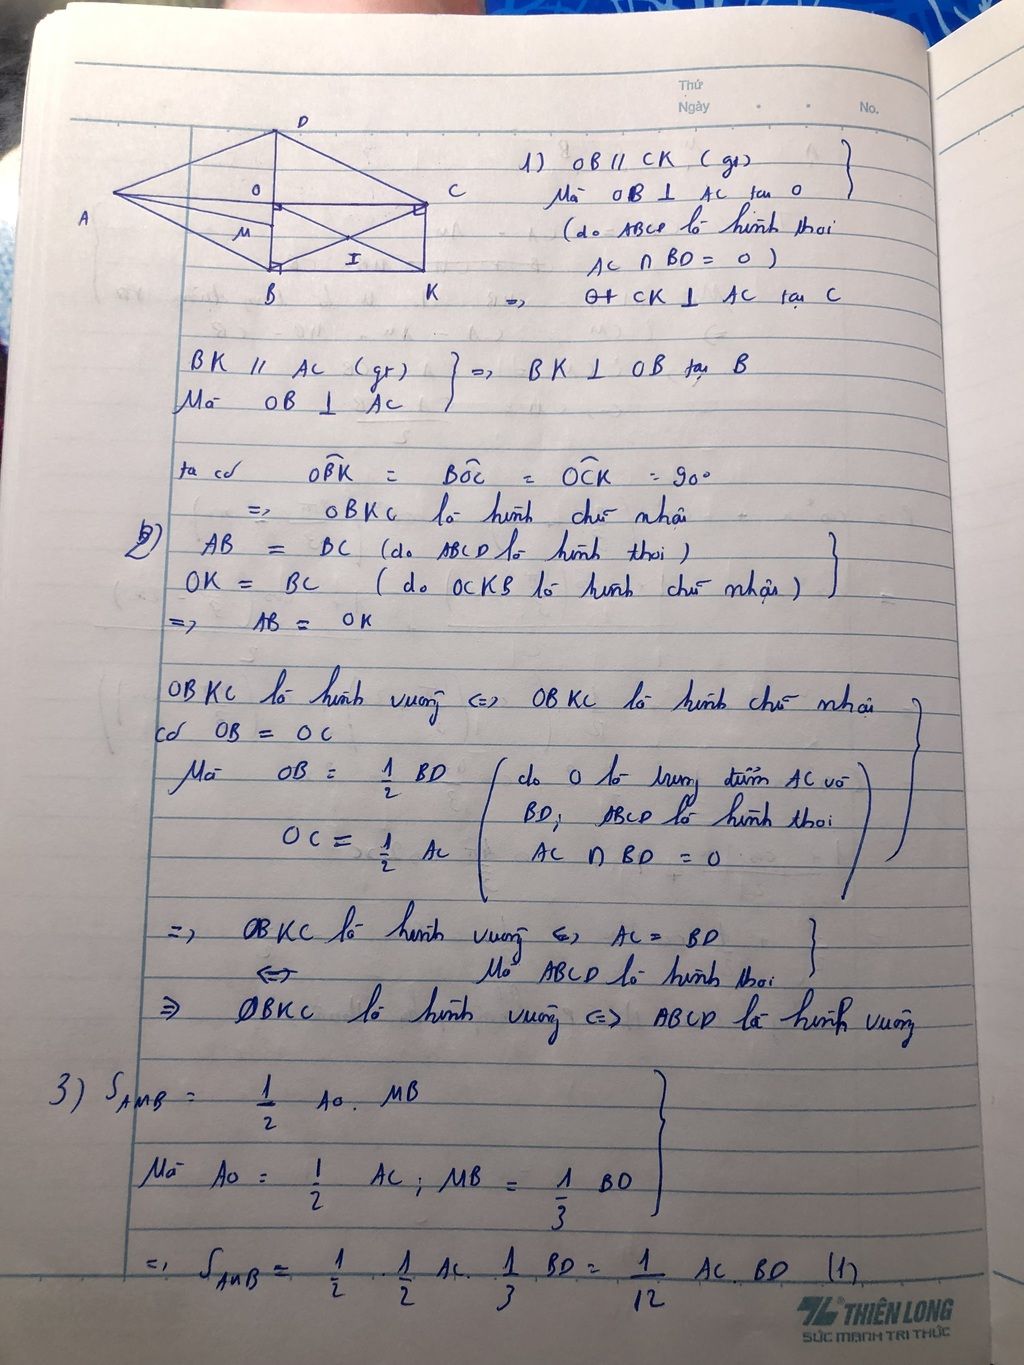 Thứ
Ngày
No.
D
A
O
C
M
I
B
K
1) OB // CK (gt)
Mà OB ⊥ AC tại O
(do ABCD là hình thoi
AC ∩ BD = O)
=> CK ⊥ AC tại C
BK // AC (gt) => BK ⊥ OB tại B
Mà OB ⊥ AC
ta có OBK = BOC = OCK = 90°
=> OBKC là hình chữ nhật
2) AB = BC (do ABCD là hình thoi)
OK = BC (do OCKB là hình chữ nhật)
=> AB = OK
OBKC là hình vuông <=> OBKC là hình chữ nhật
có OB = OC
Mà OB = 1/2 BD (do O là trung điểm AC và
BD; ABCD là hình thoi
OC = 1/2 AC AC ∩ BD = O
=> OBKC là hình vuông <=> AC = BD
<=> Mà ABCD là hình thoi
=> OBKC là hình vuông <=> ABCD là hình vuông
3) S AMB = 1/2 AO. MB
Mà AO = 1/2 AC; MB = 1/3 BD
=> S AMB = 1/2 . 1/2 AC. 1/3 BD = 1/12 AC. BD (1)
THIÊN LONG
SỨC MẠNH TRI THỨC